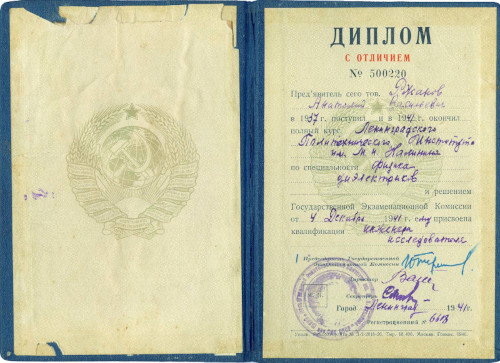 ДИПЛОМ
С ОТЛИЧИЕМ
№ 500220
Пред'явитель сего тов.
Анатолий Васильевич
в 1937 г. поступил и в 1941 окончил
полный курс Ленинградского
Политехнического Института
им. М. И. Калинина
по специальности физика
диэлектриков
и решением
Государственной Экзаменационной Комиссии
от 4 Декабря 1941 г. ему присвоена
квалификация инженера
исследователя
Председатель Государственной
Экзаменационной Комиссии
Директор
Секретарь
Город Ленинград 1941 г.
Регистрационный №